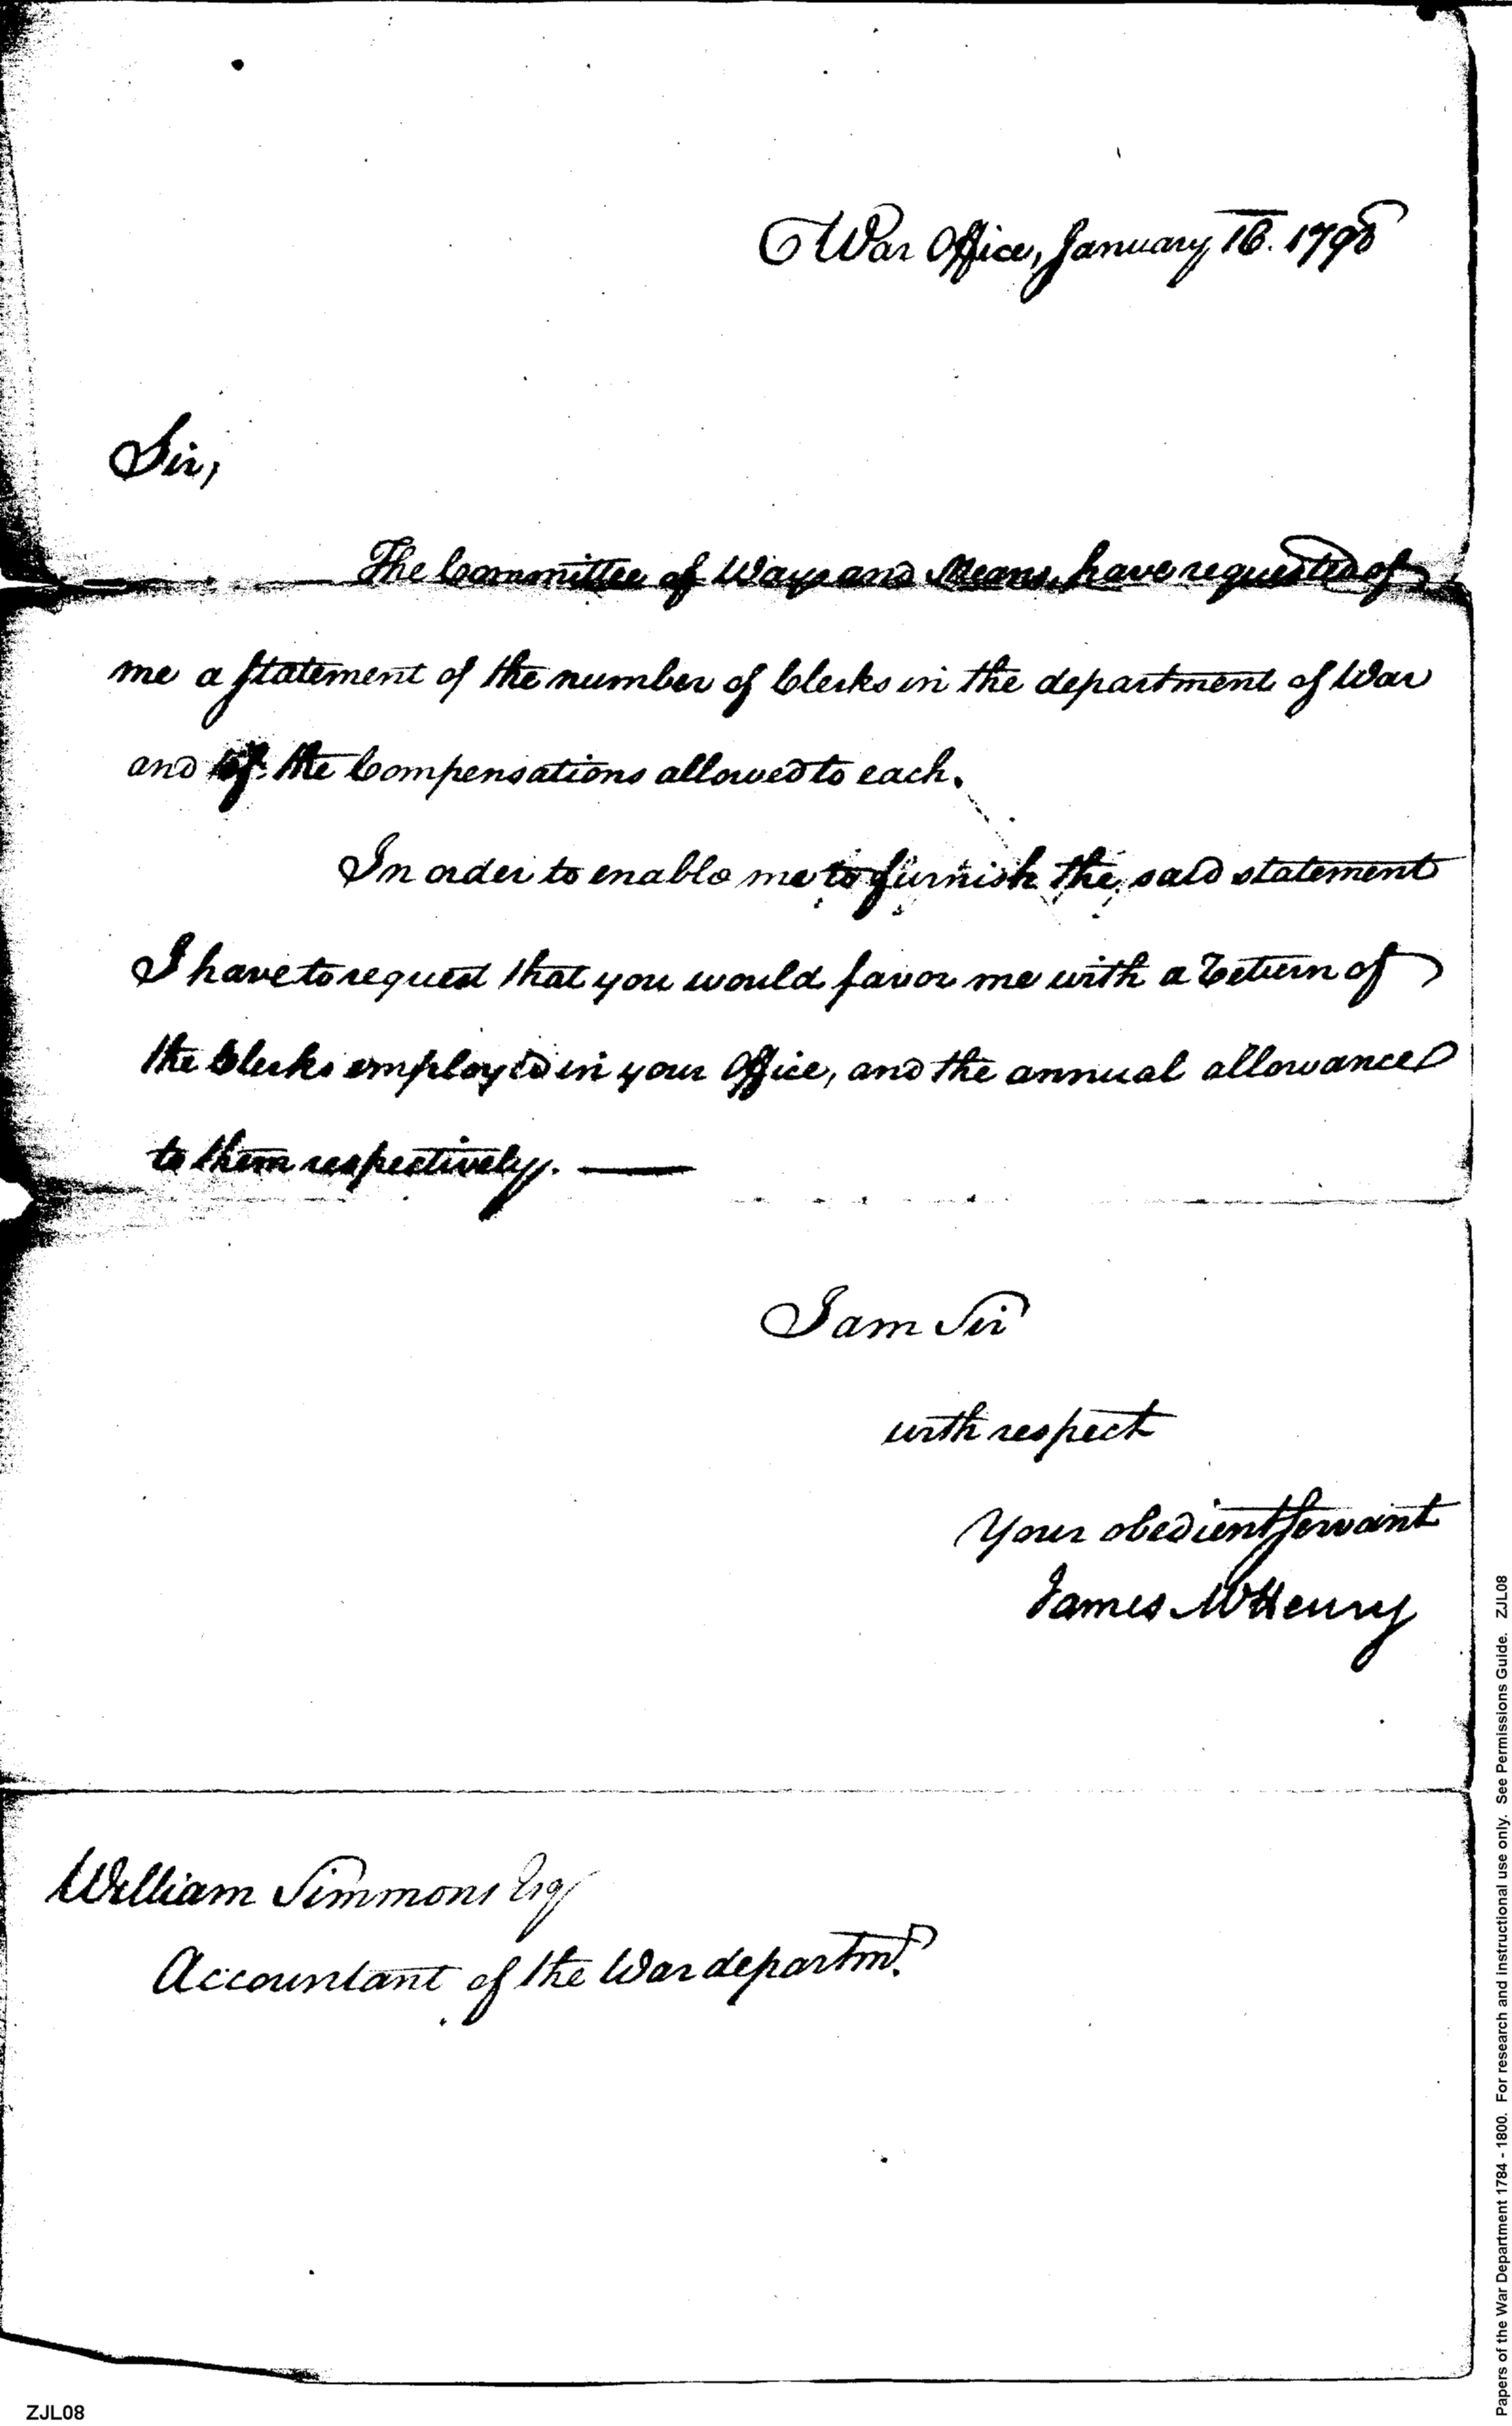 War Office, January 16. 1798
Sir,
The Committee of Ways and Means, have requested of
me a statement of the number of Clerks in the department of War
and of the Compensations allowed to each.
In order to enable me to furnish the said statement
I have to request that you would favor me with a return of
the Clerks employed in your Office, and the annual allowance
to them respectively.
I am Sir
with respect
Your obedient servant
James McHenry
William Simmons Esq
Accountant of the War departmt.
ZJL08
Papers of the War Department 1784 - 1800. For research and instructional use only. See Permissions Guide. ZJL08